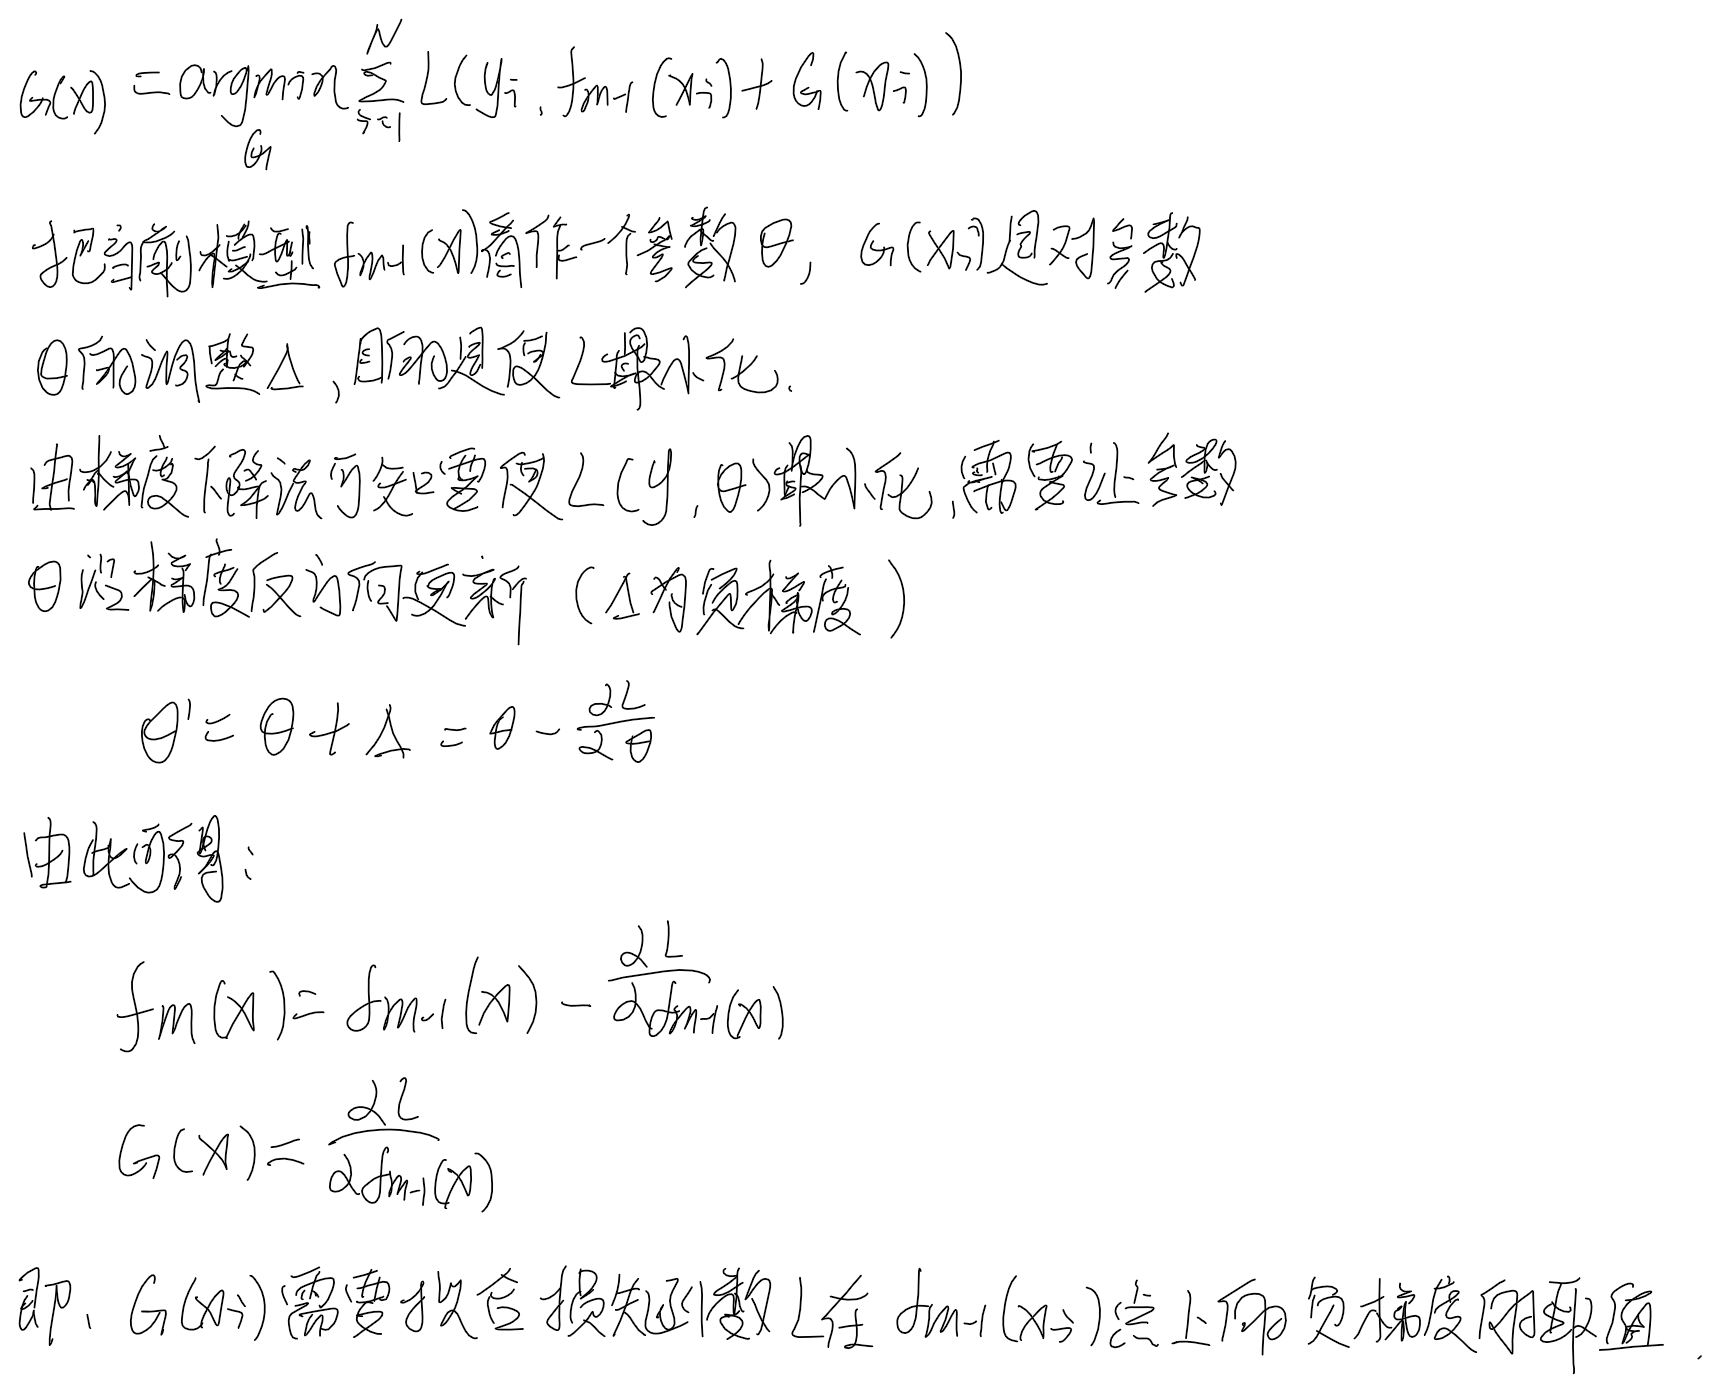 G(x) = argmin_G Σ_{i=1}^{N} L(y_i, f_{m-1}(x_i) + G(x_i))
把当前模型 f_{m-1}(x)看作一个参数 θ, G(x_i)是对参数
θ的调整Δ,目的是使L最小化.
由梯度下降法可知要使L(y, θ)最小化,需要让参数
θ沿梯度反方向更新 (Δ为负梯度)
θ' = θ + Δ = θ - ∂L/∂θ
由此可得:
f_m(x) = f_{m-1}(x) - ∂L/∂f_{m-1}(x)
G(x) = ∂L/∂f_{m-1}(x)
即、G(x_i)需要拟合损失函数L在 f_{m-1}(x_i)点上的负梯度的取值.